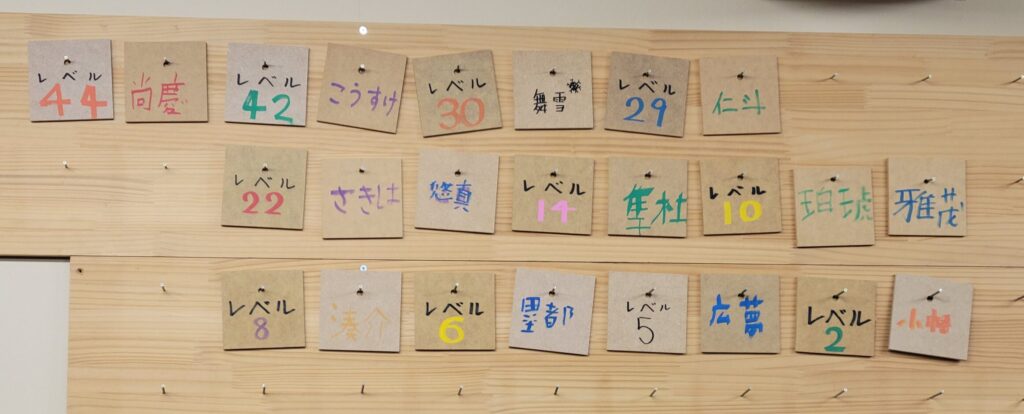 レベル
44
尚慶
レベル
42
こうすけ
レベル
30
舞雪
レベル
29
仁斗
レベル
22
さきと
悠真
レベル
14
隼杜
レベル
10
珀琥
雅茂
レベル
8
湊介
レベル
6
墨都
レベル
5
広夢
レベル
2
小幡